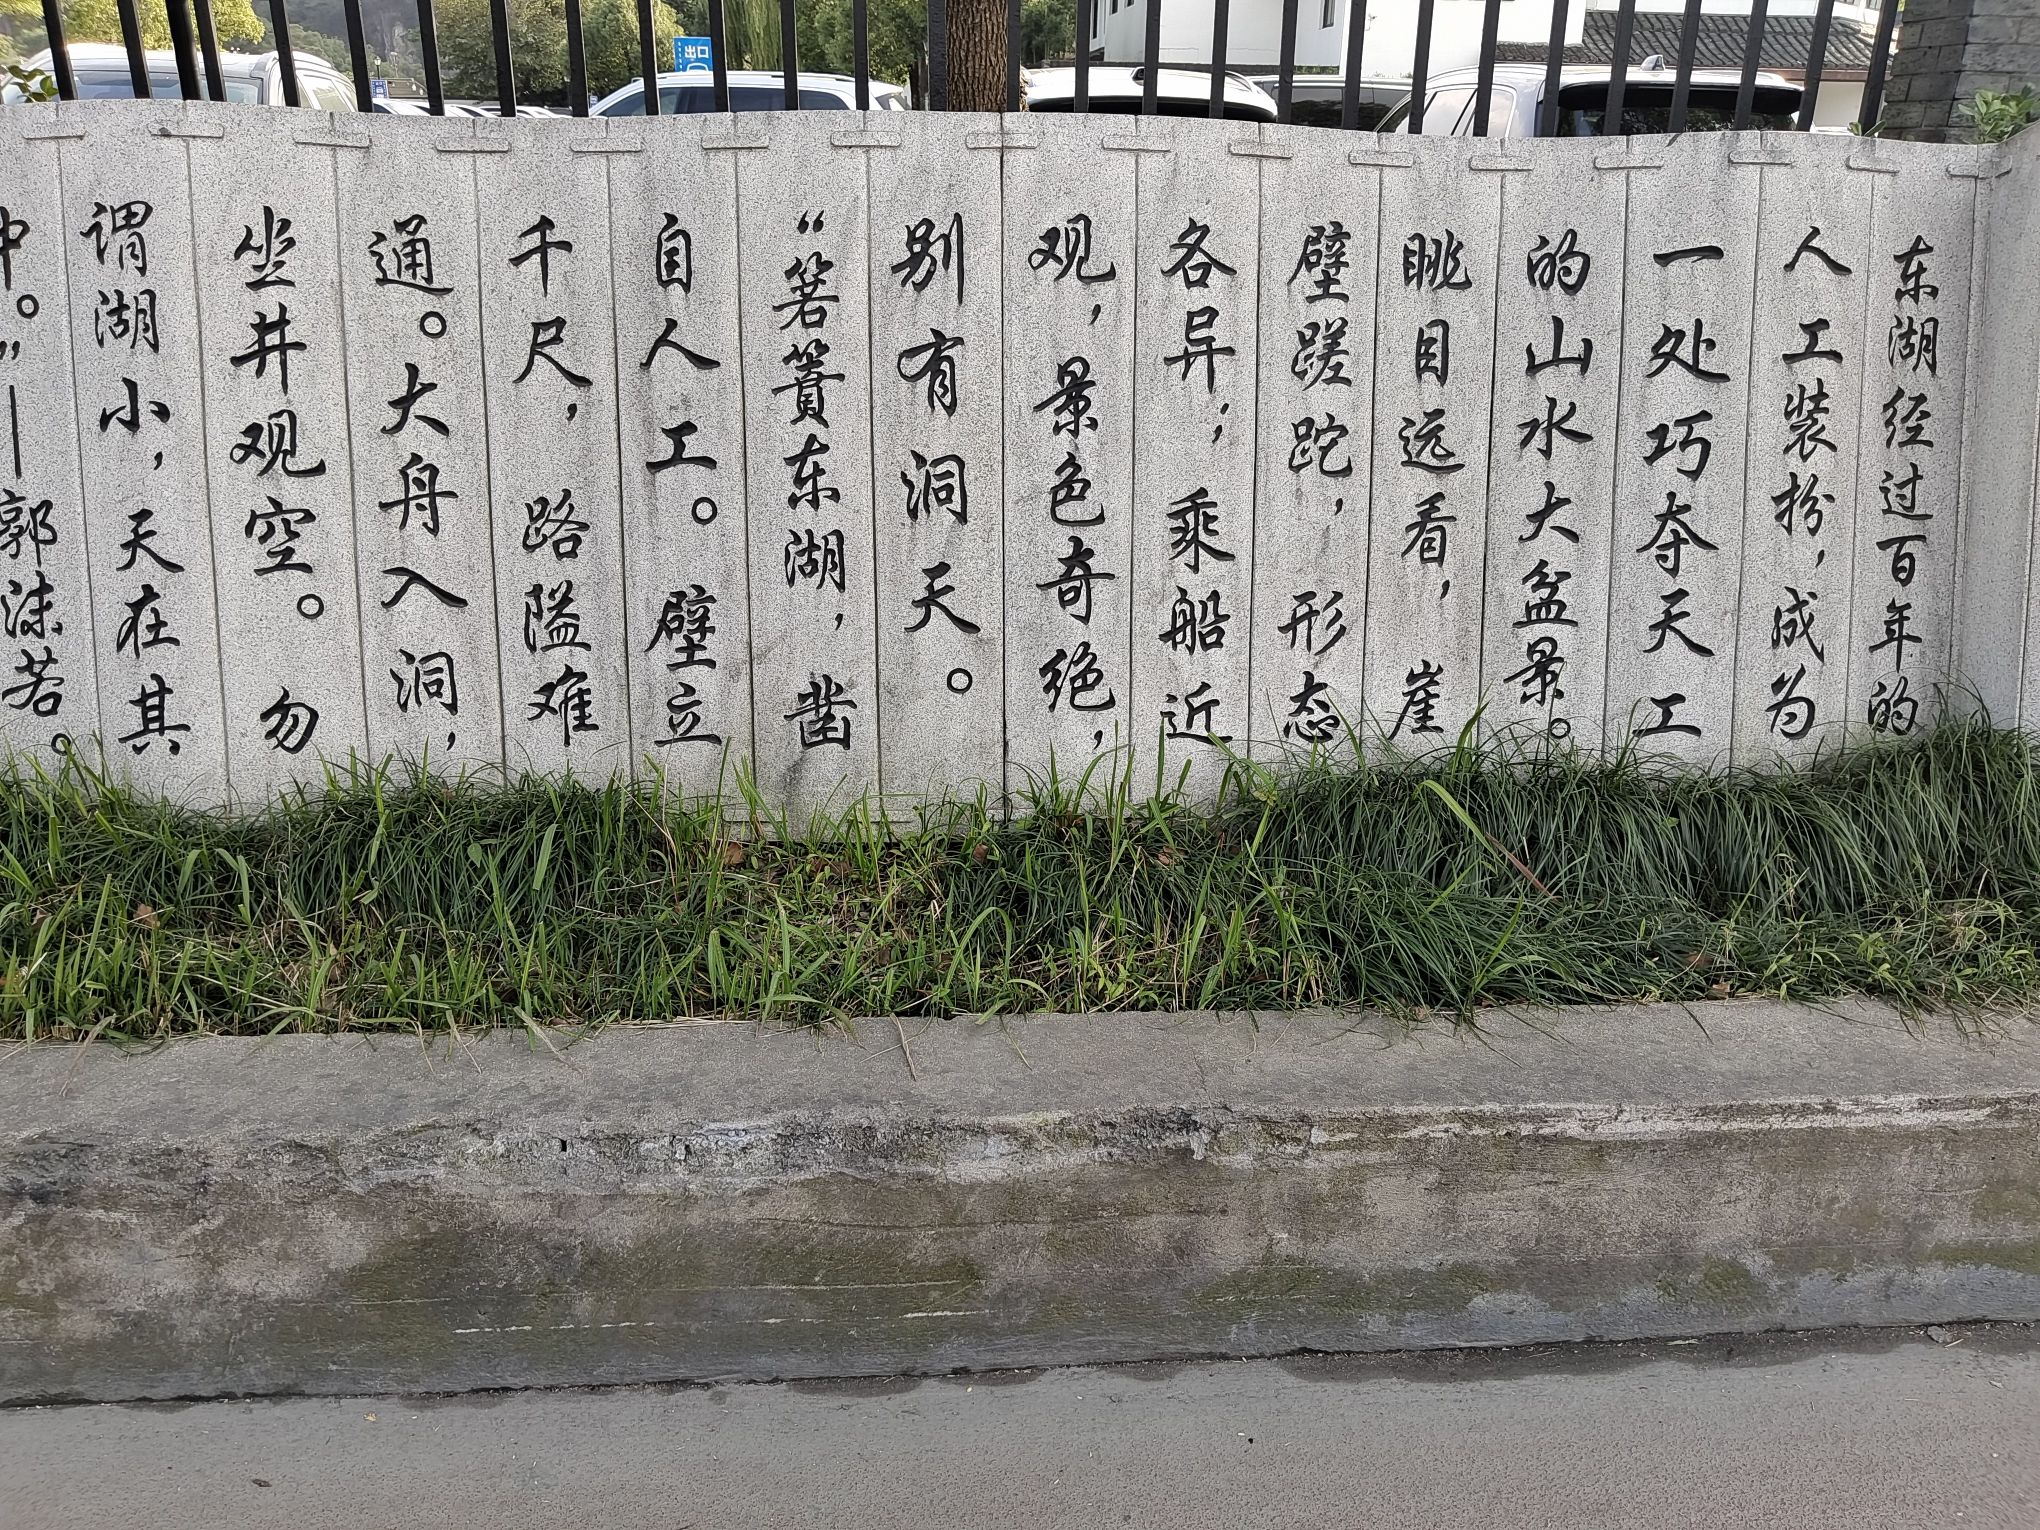 东湖经过百年的
人工装扮，成为
一处巧夺天工
的山水大盆景。
眺目远看，崖
壁蹉跎，形态
各异；乘船近
观，景色奇绝，
别有洞天。
“箬篑东湖，凿
自人工。壁立
千尺，路隘难
通。大舟入洞，
坐井观空。勿
谓湖小，天在其
中。”—郭沫若。
出口